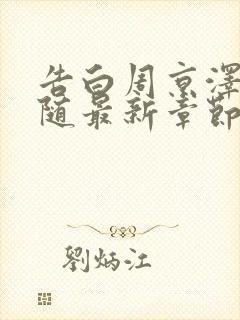 告白周京澤
随最新章節
劉炳江